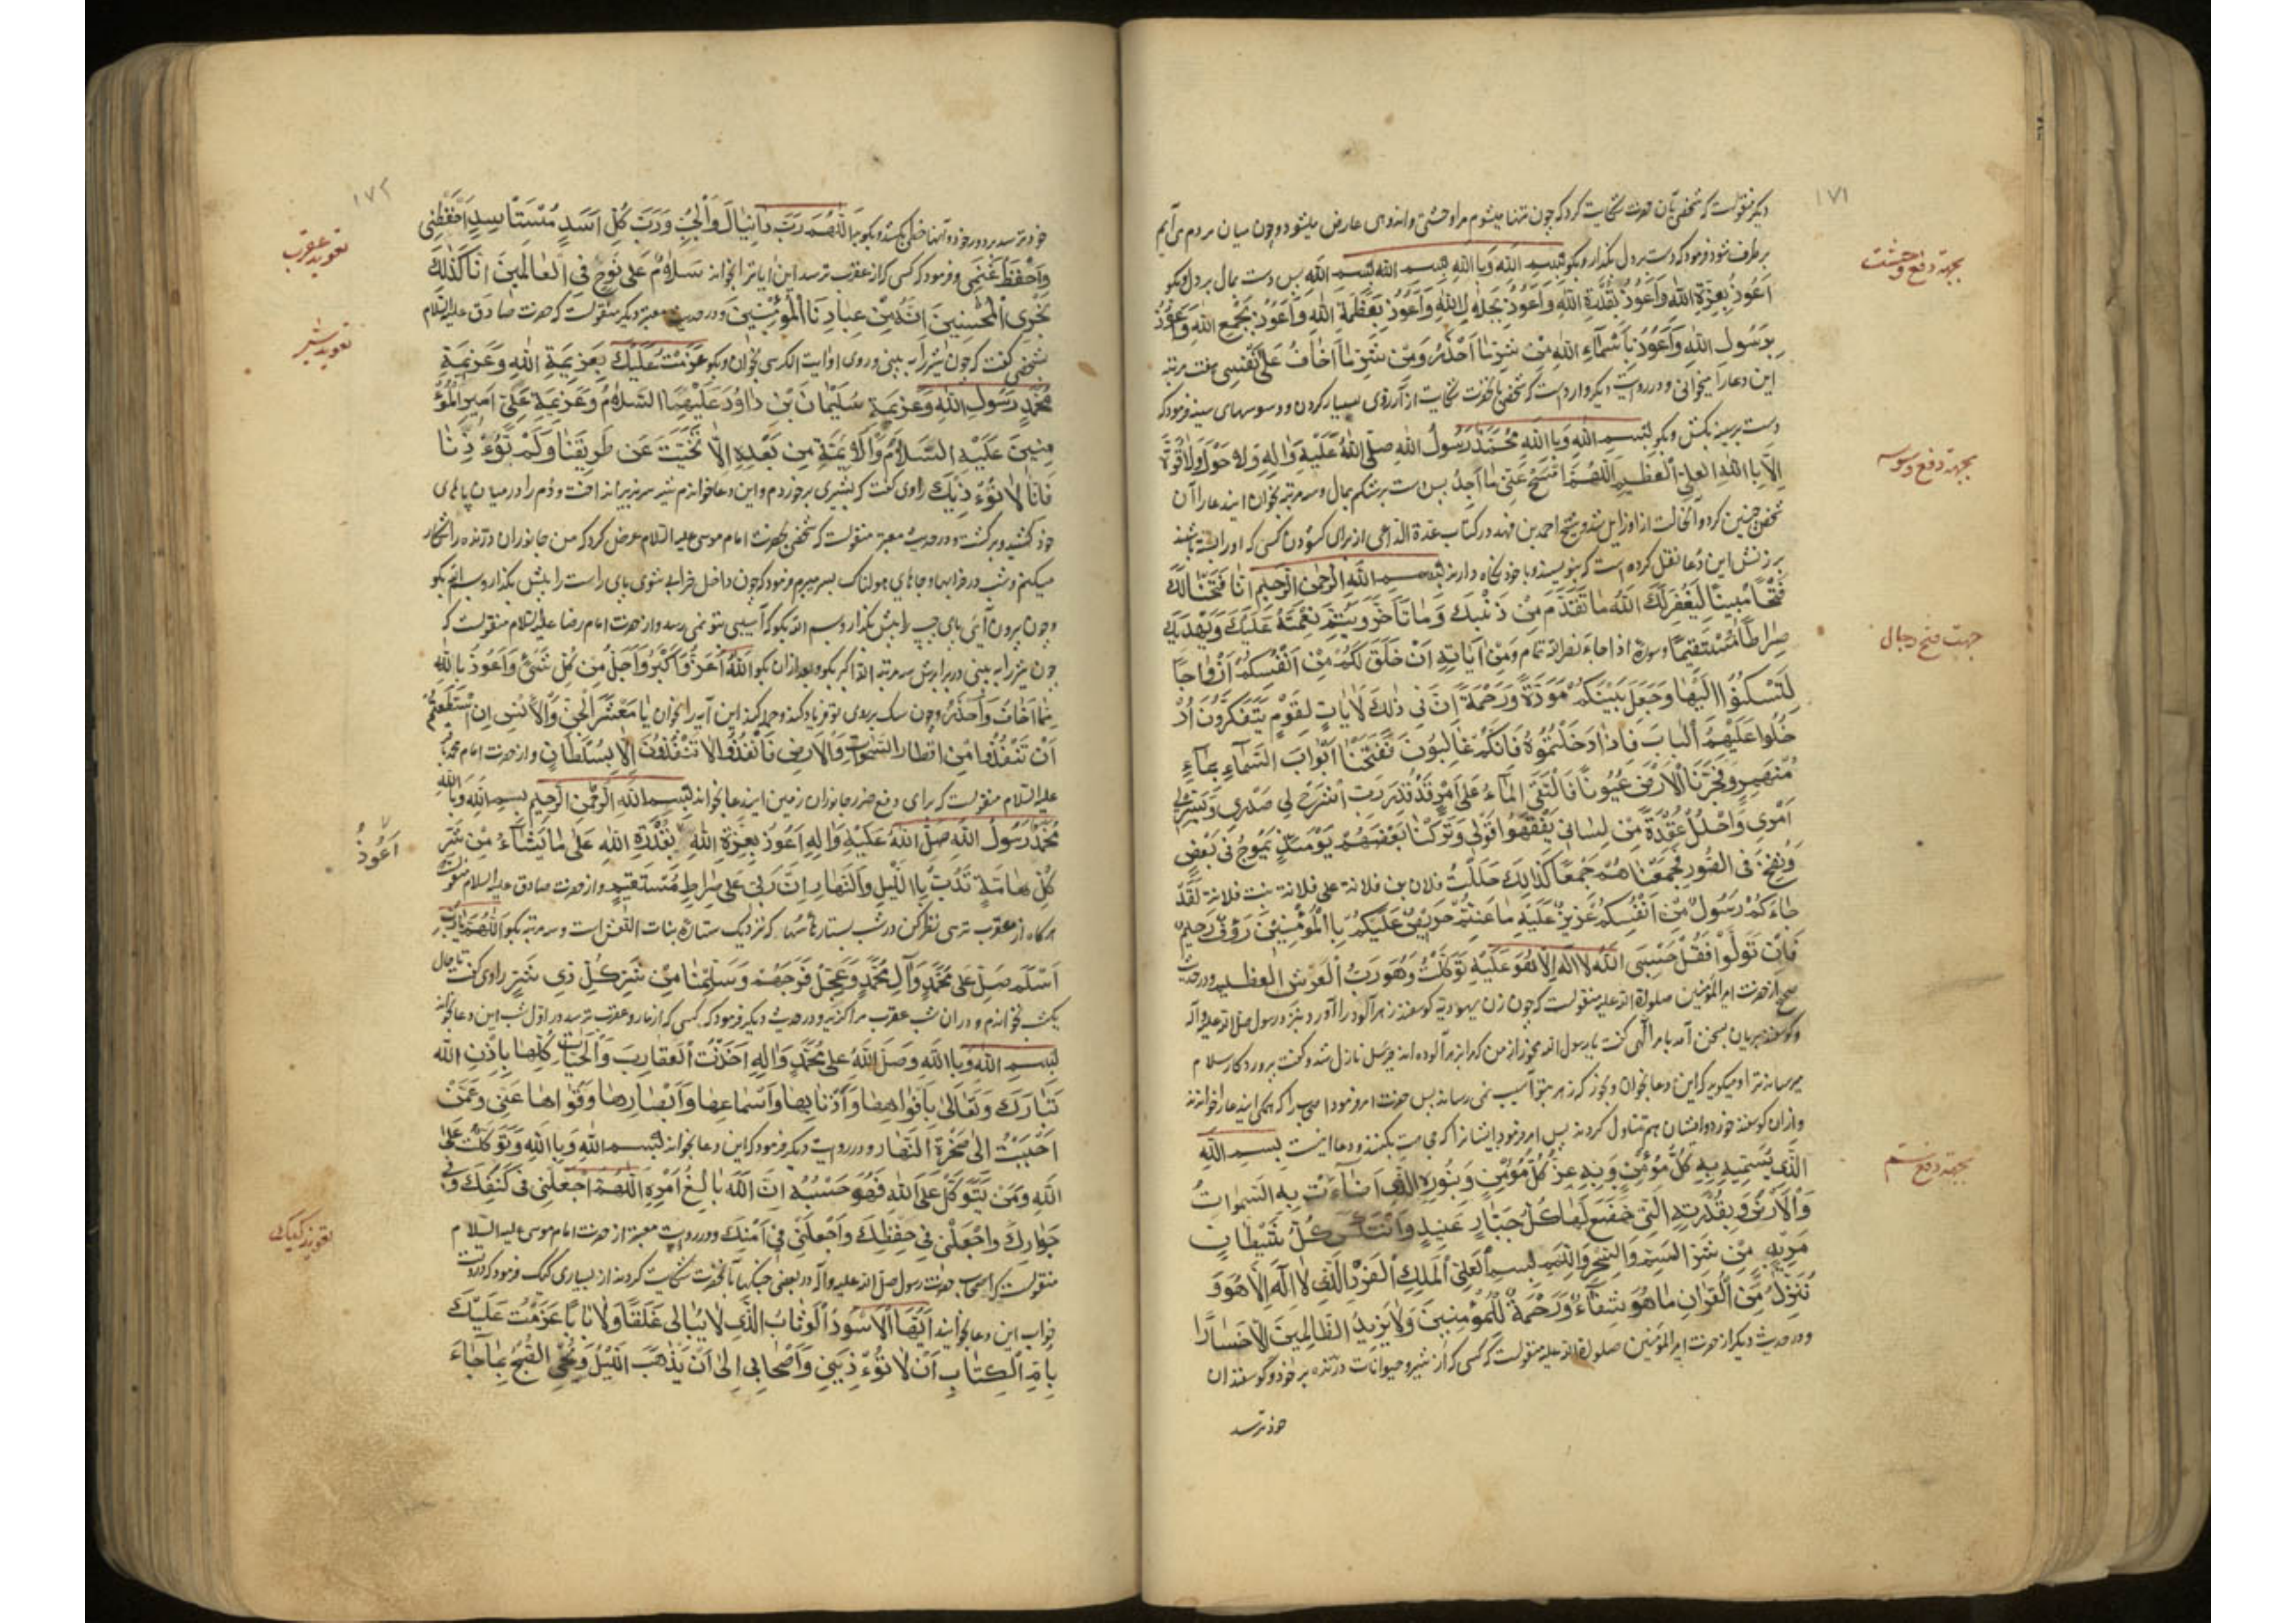 ۱۷۱
دیگر منقولست که شخصی بآن حضرت شکایت کرد که چون تنها میشوم مرا وحشتی و اندوهی عارض میشود و چون میان مردم می آیم
بجهة دفع وحشت
برطرف شود فرمود که دست بر دل بگذار و بگو بِسمِ اللهِ وَبِاللهِ بِسمِ اللهِ بِسمِ اللهِ پس دست بمال بر دل و بگو
اَعُوذُ بِعِزَّةِ اللهِ وَاَعُوذُ بِقُدْرَةِ اللهِ وَاَعُوذُ بِجَلالِ اللهِ وَاَعُوذُ بِعَظَمَةِ اللهِ وَاَعُوذُ بِجَمْعِ اللهِ وَاَعُوذُ
بِرَسُولِ اللهِ وَاَعُوذُ بِاَسْمآءِ اللهِ مِنْ شَرِّ مٰا اَحْذَرُ وَمِنْ شَرِّ مٰا اَخافُ عَلىٰ نَفْسِی هفت مرتبه
این دعا را میخوانی و در روایت دیگر وارد است که شخصی بآنحضرت شکایت از آرزوی بسیار کردن و وسوسهای سینه فرمود که
دست بر سینه بکش و بگو بِسمِ اللهِ وَبِاللهِ مُحَمَّدٌ رَسُولُ اللهِ صَلَّی اللهُ عَلَیْهِ وَاٰلِهِ وَلاٰ حَوْلَ وَلاٰ قُوَّةَ
بجهة دفع وسوسه
اِلاّٰ بِاللهِ العَلِیِّ العَظیمِ اَللّٰهُمَّ امْسَحْ عَنّی مٰا اَجِدُ پس دست بر شکم بمال و سه مرتبه بخوان این دعا را آن
شخص چنین کرد و آنحالت از او زایل شد و شیخ احمد بن فهد در کتاب عدة الداعی از برای گشودن کسی که او را بسته باشند
بر زنش این دعا نقل کرده است که بنویسند و با خود نگاه دارند بِسمِ اللهِ الرَّحمٰنِ الرَّحیمِ اِنّٰا فَتَحْنٰا لَكَ
فَتْحًا مُبینًا لِیَغْفِرَ لَكَ اللهُ مٰا تَقَدَّمَ مِنْ ذَنْبِكَ وَمٰا تَاَخَّرَ وَیُتِمَّ نِعْمَتَهُ عَلَیْكَ وَیَهْدِیَكَ
جهت فتح رجال
صِرٰاطًا مُسْتَقیمًا و سورهٔ اذا جاء نصر الله تمام وَمِنْ اٰیٰاتِهِ اَنْ خَلَقَ لَكُمْ مِنْ اَنْفُسِكُمْ اَزْوٰاجًا
لِتَسْكُنُوا اِلَیْهٰا وَجَعَلَ بَیْنَكُمْ مَوَدَّةً وَرَحْمَةً اِنَّ فی ذٰلِكَ لَاٰیٰاتٍ لِقَوْمٍ یَتَفَكَّرُونَ اُدْ
خُلُوا عَلَیْهِمُ الْبٰابَ فَاِذٰا دَخَلْتُمُوهُ فَاِنَّكُمْ غٰالِبُونَ فَفَتَحْنٰا اَبْوٰابَ السَّمآءِ بِمآءٍ
مُنْهَمِرٍ وَفَجَّرْنَا الْاَرْضَ عُیُونًا فَالْتَقَی الْمآءُ عَلىٰ اَمْرٍ قَدْ قُدِرَ رَبِّ اشْرَحْ لی صَدْری وَیَسِّرْ لی
اَمْری وَاحْلُلْ عُقْدَةً مِنْ لِسٰانی یَفْقَهُوا قَوْلی وَتَرَكْنٰا بَعْضَهُمْ یَوْمَئِذٍ یَمُوجُ فی بَعْضٍ
وَنُفِخَ فی الصُّورِ فَجَمَعْنٰاهُمْ جَمْعًا كَذٰلِكَ حَلَلْتُ فلان بن فلانة علی فلانة بنت فلانة لَقَدْ
جٰاءَكُمْ رَسُولٌ مِنْ اَنْفُسِكُمْ عَزیزٌ عَلَیْهِ مٰا عَنِتُّمْ حَریصٌ عَلَیْكُمْ بِالْمُؤْمِنینَ رَؤُفٌ رَحیمٌ
فَاِنْ تَوَلَّوْا فَقُلْ حَسْبِیَ اللهُ لاٰ اِلٰهَ اِلاّٰ هُوَ عَلَیْهِ تَوَكَّلْتُ وَهُوَ رَبُّ الْعَرْشِ الْعَظیمِ و در حدیث
صحیح از حضرت امیر المؤمنین صلوة الله علیه منقولست که چون زن یهودیه گوسفند زهر آلود را آورد بنزد رسول صلی الله علیه و آله
و گوسفند بریان بسخن آمد بامر الهی گفت یا رسول الله مخور از من که مرا بزهر آلوده اند جبرئیل نازل شد و گفت پروردگار سلام
میرساند ترا و میگوید که این دعا بخوان و بخور که زهر بتو آسیب نمی رساند پس حضرت امر فرمود اصحاب را که همگی این دعا را خواندند
و از آن گوسفند خوردند و ایشان هم تناول کردند پس امر فرمود ایشانرا که حجامت بکنند و دعا اینست بِسمِ اللهِ
بجهة دفع سم
الَّذی یُسَمّیهِ بِهِ كُلُّ مُؤْمِنٍ وَبِهِ عِزُّ كُلِّ مُؤْمِنٍ وَبِنُورِهِ الَّذی اَضآءَتْ بِهِ السَّمٰوٰاتُ
وَالْاَرْضُ وَبِقُدْرَتِهِ الَّتی خَضَعَ لَهٰا كُلُّ جَبّٰارٍ عَنیدٍ وَانْتَكَسَ كُلُّ شَیْطٰانٍ
مَریدٍ مِنْ شَرِّ السَّمِّ وَالسِّحْرِ وَاللَّمَمِ بِسمِ الْعَلِیِّ الْمَلِكِ الْفَرْدِ الَّذی لاٰ اِلٰهَ اِلاّٰ هُوَ وَ
نُنَزِّلُ مِنَ الْقُرْاٰنِ مٰا هُوَ شِفآءٌ وَرَحْمَةٌ لِلْمُؤْمِنینَ وَلاٰ یَزیدُ الظّٰالِمینَ اِلاّٰ خَسٰارًا
و در حدیث دیگر از حضرت امیر المؤمنین صلوة الله علیه منقولست که کسی که از شیر و حیوانات درنده بر خود و گوسفندان
خود ترسد
۱۷۲
خود ترسد بر دور خود و آنها خطی بکشد و بگوید اَللّٰهُمَّ رَبَّ دٰانِیٰالَ وَالْجُبِّ وَرَبَّ كُلِّ اَسَدٍ مُسْتَأْسِدٍ اِحْفَظْنی
تعوید عقرب
وَاحْفَظْ غَنَمی و فرمود که کسی که از عقرب ترسد این آیات را بخواند سَلاٰمٌ عَلىٰ نُوحٍ فی العٰالَمینَ اِنّٰا كَذٰلِكَ
نَجْزِی الْمُحْسِنینَ اِنَّهُ مِنْ عِبٰادِنَا الْمُؤْمِنینَ و در حدیث معتبر دیگر منقولست که حضرت صادق علیه السلام
تعوید شیر
بشخصی گفت که چون شیر را به بینی در روی او آیت الکرسی بخوان و بگو عَزَمْتُ عَلَیْكَ بِعَزیمَةِ اللهِ وَعَزیمَةِ
مُحَمَّدٍ رَسُولِ اللهِ وَعَزیمَةِ سُلَیْمٰانَ بْنِ دٰاوُدَ عَلَیْهِمَا السَّلاٰمُ وَعَزیمَةِ عَلِیٍّ اَمیرِ الْمُؤْ
مِنینَ عَلَیْهِ السَّلاٰمُ وَالْاَئِمَّةِ مِنْ بَعْدِهِ اِلاّٰ تَنَحَّیْتَ عَنْ طَریقِنٰا وَلَمْ تُؤْذِنٰا
فَاِنّٰا لاٰ نُؤْذیكَ راوی گفت که بشیری برخوردم و این دعا خواندم شیر سر بزیر انداخت و دم را در میان پاهای
خود کشید و برگشت و در حدیث معتبر منقولست که شخصی بحضرت امام موسی علیه السلام عرض کرد که من جانوران درنده را شکار
میکنم و شب در خرابها و جاهای هولناک بسر میبرم فرمود که چون داخل خرابه شوی پای راست را پیش بگذار و بسم الله بگو
و چون بیرون آئی پای چپ را پیش بگذار و بسم الله بگو که آسیبی بتو نمی رسد و از حضرت امام رضا علیه السلام منقولست که
چون شیر را به بینی در برابرش سه مرتبه الله اکبر بگو و بعد از آن بگو اَللهُ اَعَزُّ وَاَكْبَرُ وَاَجَلُّ مِنْ كُلِّ شَیْءٍ وَاَعُوذُ بِاللهِ
مِمّٰا اَخٰافُ وَاَحْذَرُ و چون سگ بر روی تو فریاد کند و حمله کند این آیه را بخوان یٰا مَعْشَرَ الْجِنِّ وَالْاِنْسِ اِنِ اسْتَطَعْتُمْ
اَنْ تَنْفُذُوا مِنْ اَقْطٰارِ السَّمٰوٰاتِ وَالْاَرْضِ فَانْفُذُوا لاٰ تَنْفُذُونَ اِلاّٰ بِسُلْطٰانٍ و از حضرت امام محمد باقر
علیه السلام منقولست که برای دفع ضرر جانوران زمین این دعا بخواند بِسمِ اللهِ الرَّحمٰنِ الرَّحیمِ بِسمِ اللهِ وَبِاللهِ
مُحَمَّدٌ رَسُولُ اللهِ صَلَّی اللهُ عَلَیْهِ وَاٰلِهِ اَعُوذُ بِعِزَّةِ اللهِ بِقُدْرَةِ اللهِ عَلىٰ مٰا یَشٰآءُ مِنْ شَرِّ
اَعُوذُ
كُلِّ هٰامَّةٍ تَدُبُّ بِاللَّیْلِ وَالنَّهٰارِ اِنَّ رَبّی عَلىٰ صِرٰاطٍ مُسْتَقیمٍ و از حضرت صادق علیه السلام منقولست
هرگاه از عقرب ترسی نظر کن در شب بستارهٔ سها که نزدیک ستارهٔ بنات النعش است و سه مرتبه بگو اَللّٰهُمَّ یٰا رَبَّ
اَسْلَمَ صَلِّ عَلىٰ مُحَمَّدٍ وَاٰلِ مُحَمَّدٍ وَعَجِّلْ فَرَجَهُمْ وَسَلِّمْنٰا مِنْ شَرِّ كُلِّ ذی شَرٍّ راوی گفت تا حال
یکشب نخواندم و در آن شب عقرب مرا گزید و در حدیث دیگر فرمود که کسی که از مار و عقرب ترسد در اول شب این دعا بخواند
بِسمِ اللهِ وَبِاللهِ وَصَلَّی اللهُ عَلىٰ مُحَمَّدٍ وَاٰلِهِ اَخَذْتُ الْعَقٰارِبَ وَالْحَیّٰاتِ كُلَّهٰا بِاِذْنِ اللهِ
تَبٰارَكَ وَتَعٰالىٰ بِاَفْوٰاهِهٰا وَاَذْنٰابِهٰا وَاَسْمٰاعِهٰا وَاَبْصٰارِهٰا وَقُوٰاهٰا عَنّی وَعَمَّنْ
اَحْبَبْتُ اِلىٰ ضَحْوَةِ النَّهٰارِ و در روایت دیگر فرمود که این دعا بخواند بِسمِ اللهِ وَبِاللهِ وَتَوَكَّلْتُ عَلَى
اللهِ وَمَنْ یَتَوَكَّلْ عَلَى اللهِ فَهُوَ حَسْبُهُ اِنَّ اللهَ بٰالِغُ اَمْرِهِ اَللّٰهُمَّ اجْعَلْنی فی كَنَفِكَ وَفی
جِوٰارِكَ وَاجْعَلْنی فی حِفْظِكَ وَاجْعَلْنی فی اَمْنِكَ و در روایت معتبر از حضرت امام موسی علیه السلام
تعویذ کیک
منقولست که اصحاب حضرت رسول صلی الله علیه و آله در بعضی جنگها بآنحضرت شکایت کردند از بسیاری کیک فرمود که در وقت
خواب این دعا بخوانید اَیُّهَا الْاَسْوَدُ الْوَثّٰابُ الَّذی لاٰ یُبٰالی غَلَقًا وَلاٰ بٰابًا عَزَمْتُ عَلَیْكَ
بِاُمِّ الْكِتٰابِ اَنْ لاٰ تُؤْذِیَنی وَاَصْحٰابی اِلىٰ اَنْ یَذْهَبَ اللَّیْلُ وَیَجِیءَ الصُّبْحُ بِمٰا جٰاءَ